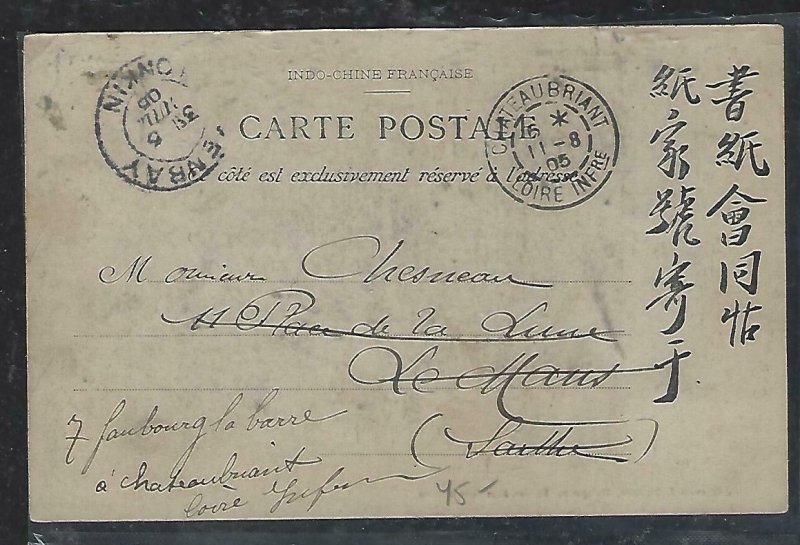 INDO-CHINE FRANÇAISE
CARTE POSTALE
Ce côté est exclusivement réservé à l'adresse
YENBAY
TONKIN
CHATEAUBRIANT
11-8
05
LOIRE INFRE
書紙會同
紙家號寄于
Monsieur Chesneau
11 Place de la Lune
Le Mans
(Sarthe)
7 faubourg la barre
à chateaubriant
loire Infer
45-